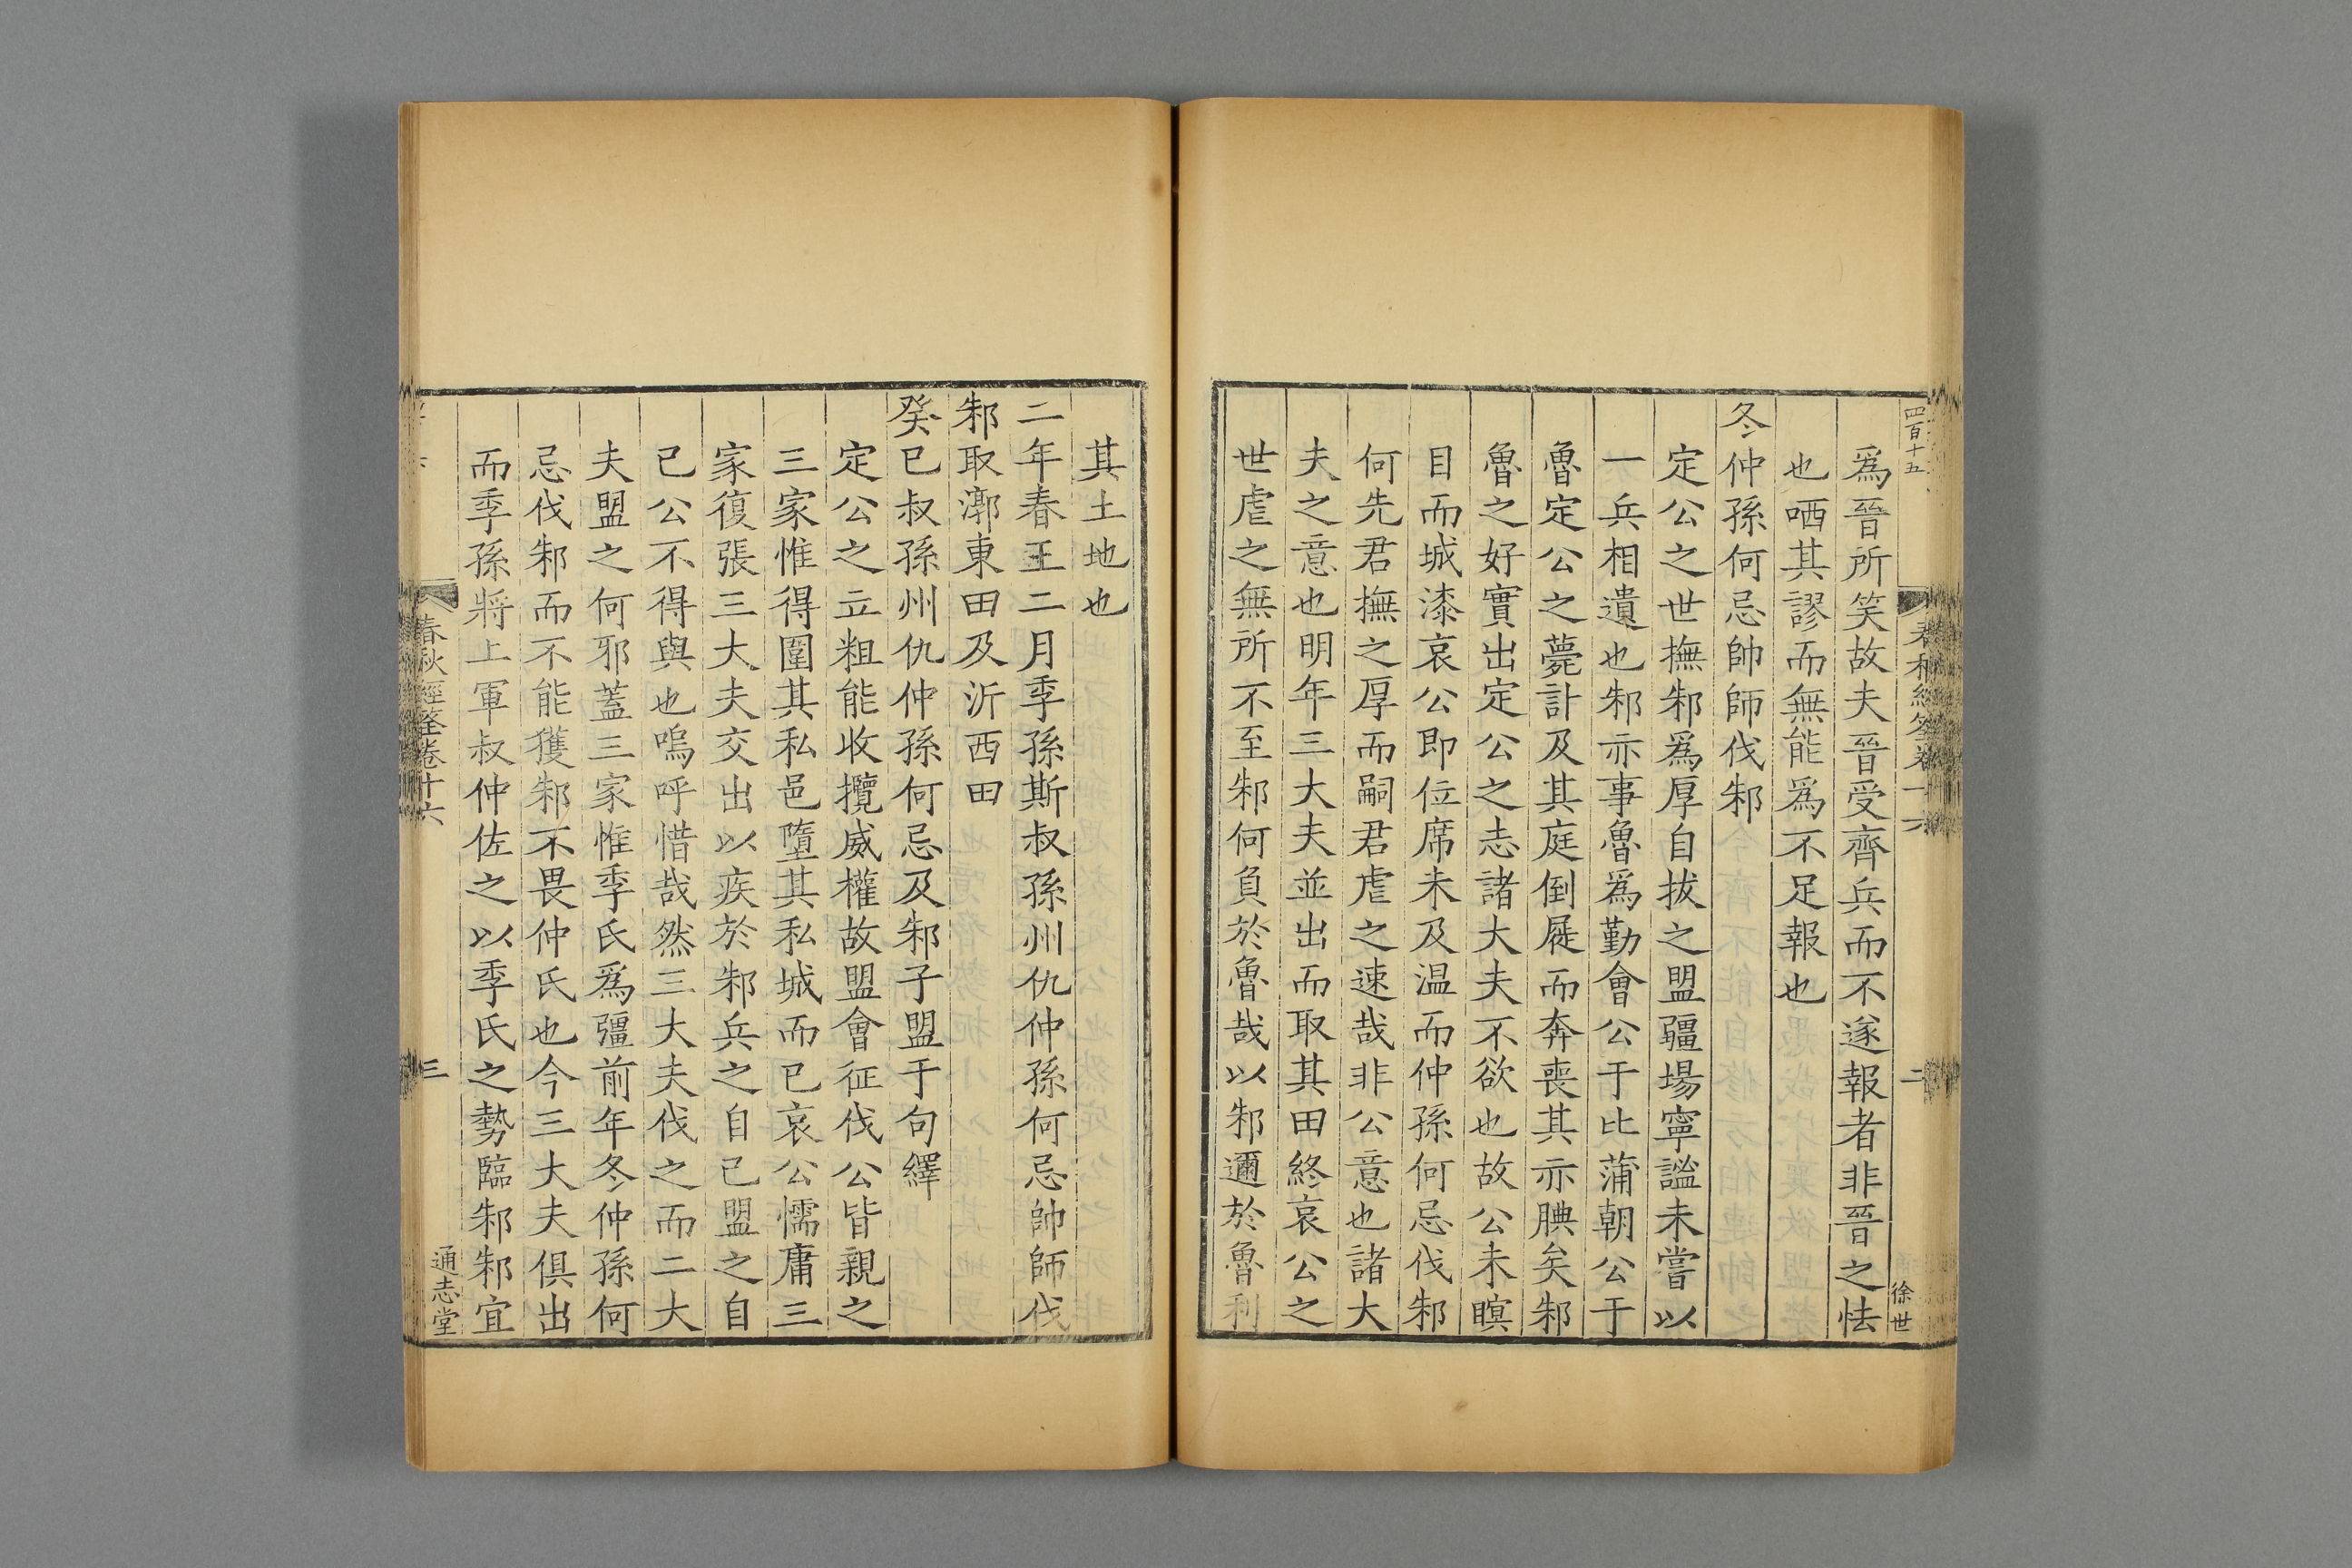 四百十五
春秋經筌卷十六
二
徐世
爲晉所笑故夫晉受齊兵而不遂報者非晉之怯
也哂其謬而無能爲不足報也
冬仲孫何忌帥師伐邾
定公之世撫邾爲厚自拔之盟疆場寧謐未嘗以
一兵相遺也邾亦事魯爲勤會公于比蒲朝公于
魯定公之薨計及其庭倒屣而奔喪其亦腆矣邾
魯之好實出定公之志諸大夫不欲也故公未瞑
目而城漆哀公即位席未及温而仲孫何忌伐邾
何先君撫之厚而嗣君虐之速哉非公意也諸大
夫之意也明年三大夫並出而取其田終哀公之
世虐之無所不至邾何負於魯哉以邾邇於魯利
其土地也
二年春王二月季孫斯叔孫州仇仲孫何忌帥師伐
邾取漷東田及沂西田
癸巳叔孫州仇仲孫何忌及邾子盟于句繹
定公之立粗能收攬威權故盟會征伐公皆親之
三家惟得圍其私邑墮其私城而已哀公懦庸三
家復張三大夫交出以疾於邾兵之自已盟之自
已公不得與也嗚呼惜哉然三大夫伐之而二大
夫盟之何邪蓋三家惟季氏爲彊前年冬仲孫何
忌伐邾而不能獲邾不畏仲氏也今三大夫俱出
而季孫將上軍叔仲佐之以季氏之勢臨邾邾宜
春秋經筌卷十六
三
通志堂